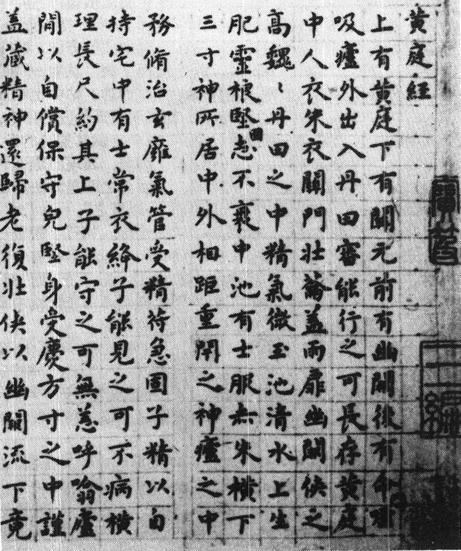 黄庭經
上有黄庭下有關元前有幽闕後有命嘘
吸廬外出入丹田審能行之可長存黄庭
中人衣朱衣關門壯籥蓋兩扉幽闕俠之
高魏〻丹田之中精氣微玉池清水上生
肥靈根堅志不衰中池有士服赤朱横下
三寸神所居中外相距重閉之神廬之中
務脩治玄廱氣管受精符急固子精以自
持宅中有士常衣絳子能見之可不病横
理長尺約其上子能守之可無恙呼噏廬
間以自償保守皃堅身受慶方寸之中謹
盖蔵精神還歸老復壯俠以幽闕流下竟